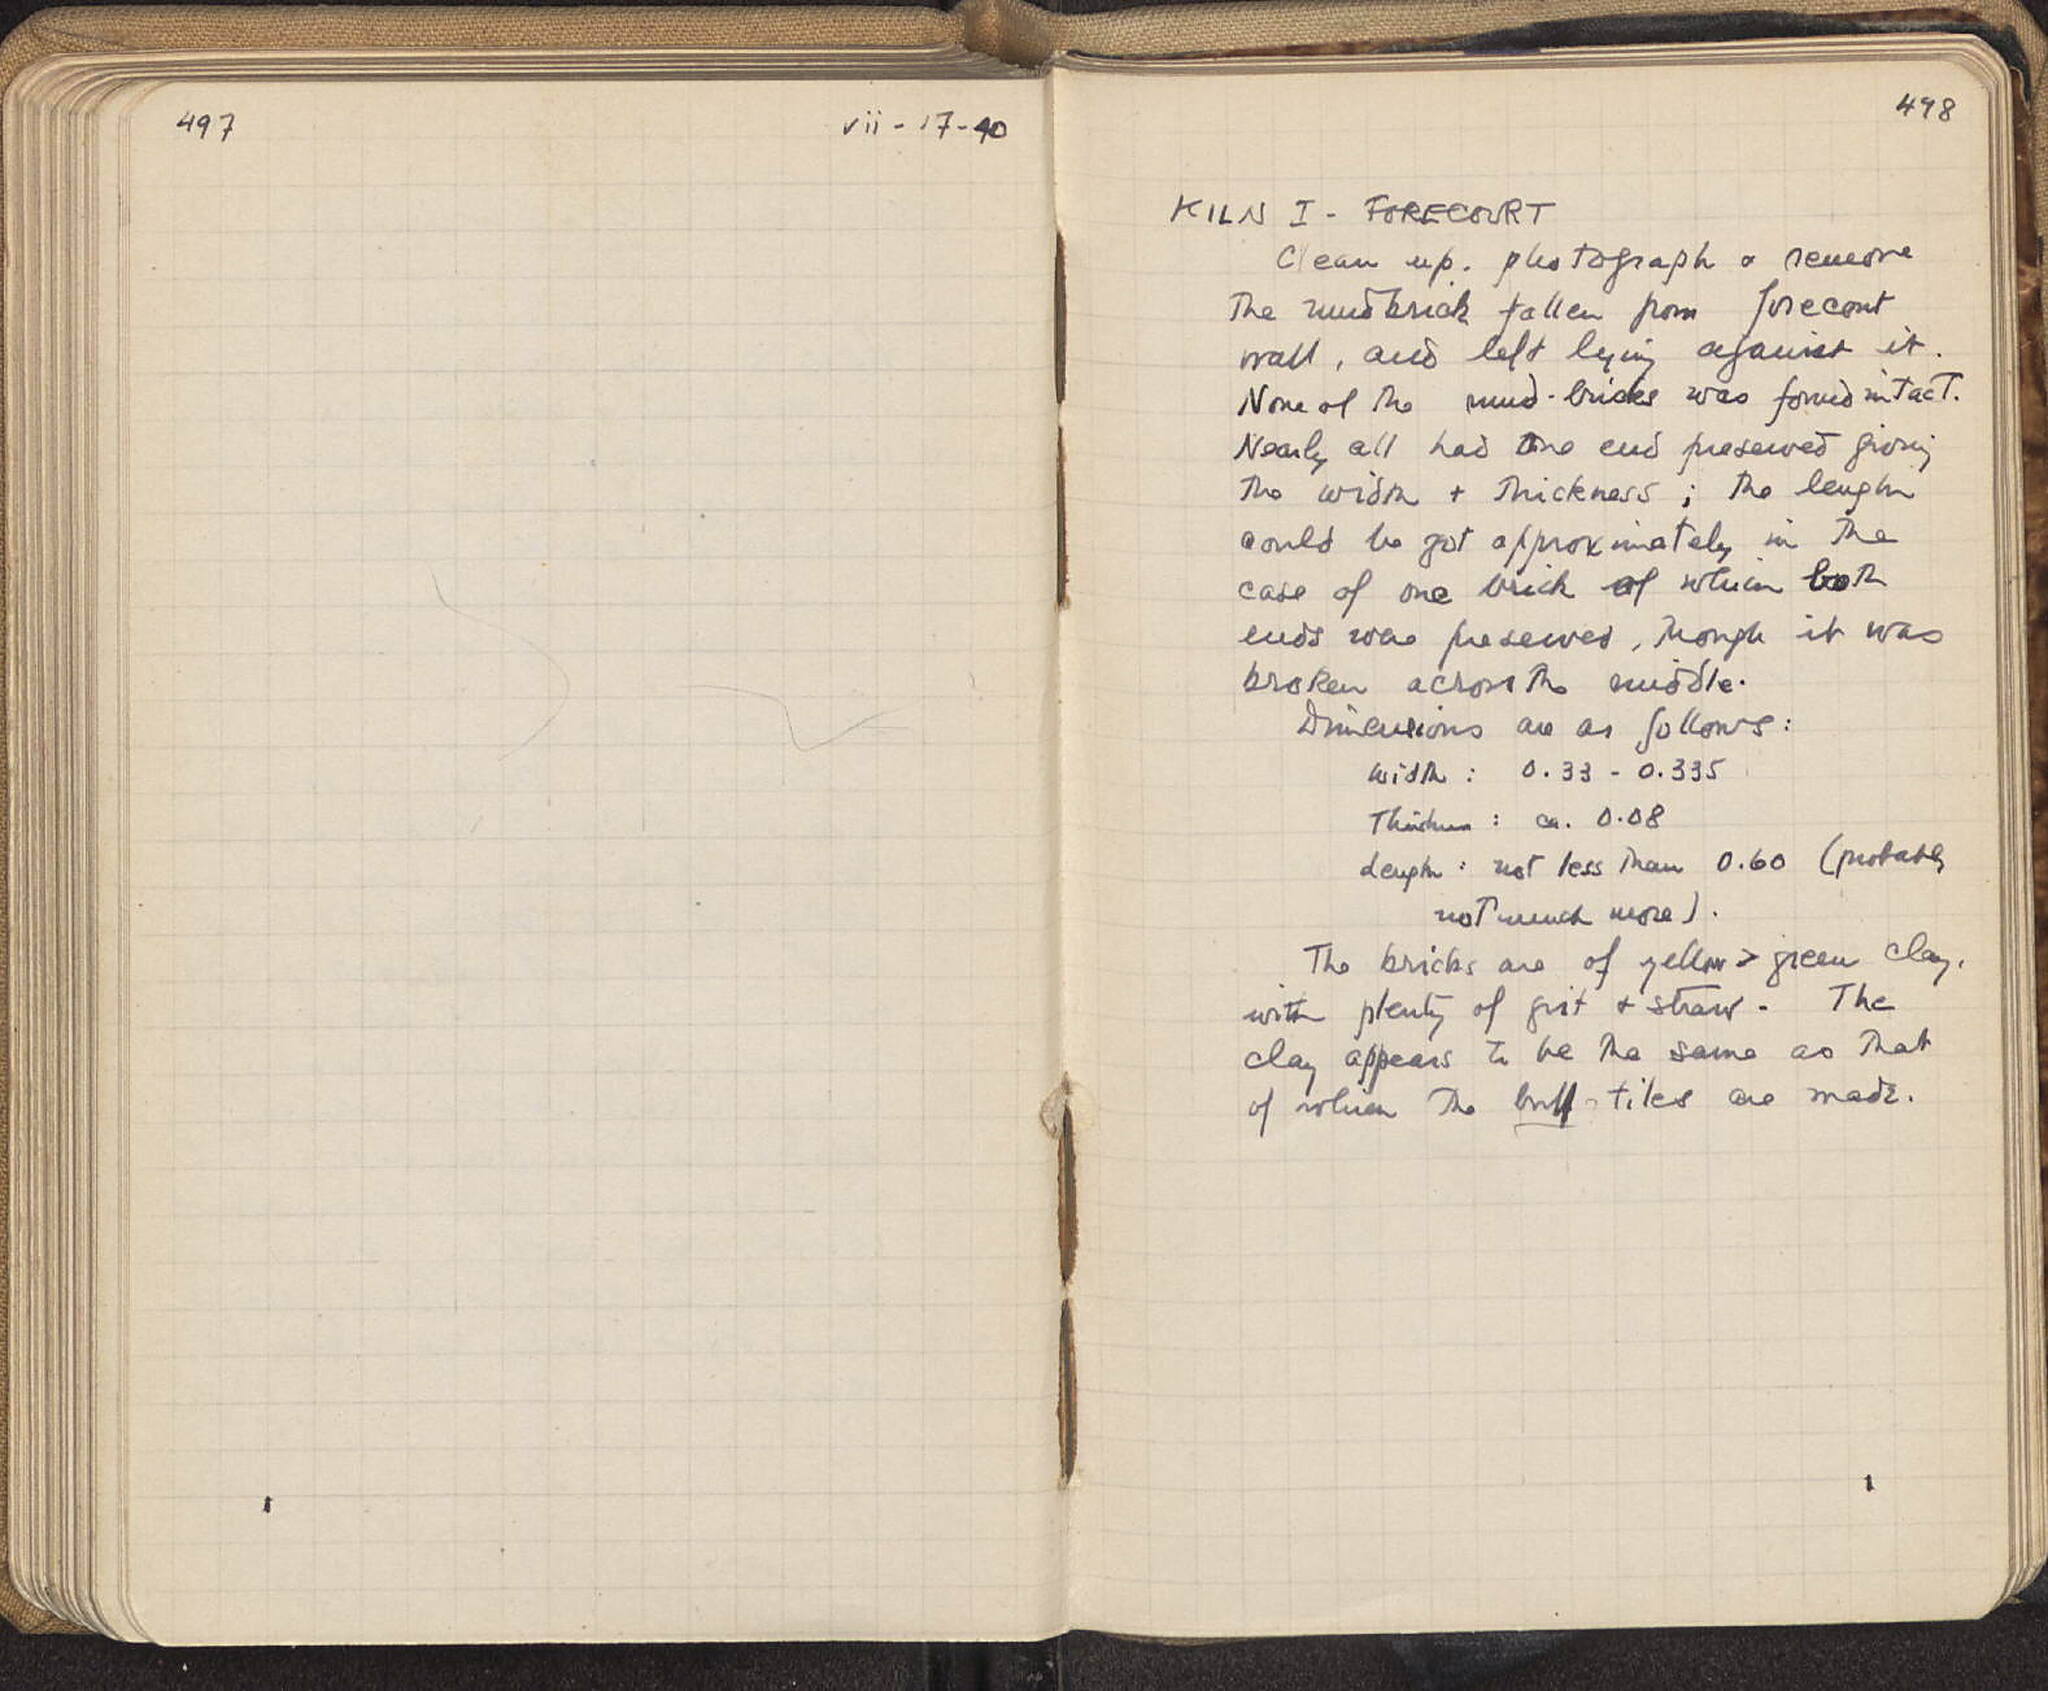 497
vii - 17 - 40
498
KILN I - FORECOURT
Clean up. photograph & remove
the mudbrick fallen from forecourt
wall, and left lying against it.
None of the mud-bricks was found intact.
Nearly all had one end preserved giving
the width + thickness ; the length
could be got approximately in the
case of one brick of which both
ends were preserved, though it was
broken across the middle.
Dimensions are as follows:
Width : 0.33 - 0.335
Thickness : ca. 0.08
Length : not less than 0.60 (probably
not much more).
The bricks are of yellow > green clay,
with plenty of grit + straw. The
clay appears to be the same as that
of which the buff-tiles are made.
1
1